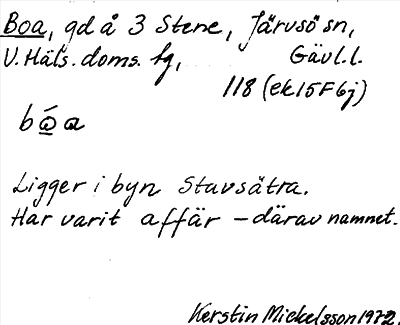 Boa, gd å 3 Stene, Järvsö sn,
V. Häls. doms. fg, Gävl.l.
118 (ek 15F 6j)
bó̲a
Ligger i byn Stavsätra.
Har varit affär – därav namnet.
Kerstin Mickelsson 1972.